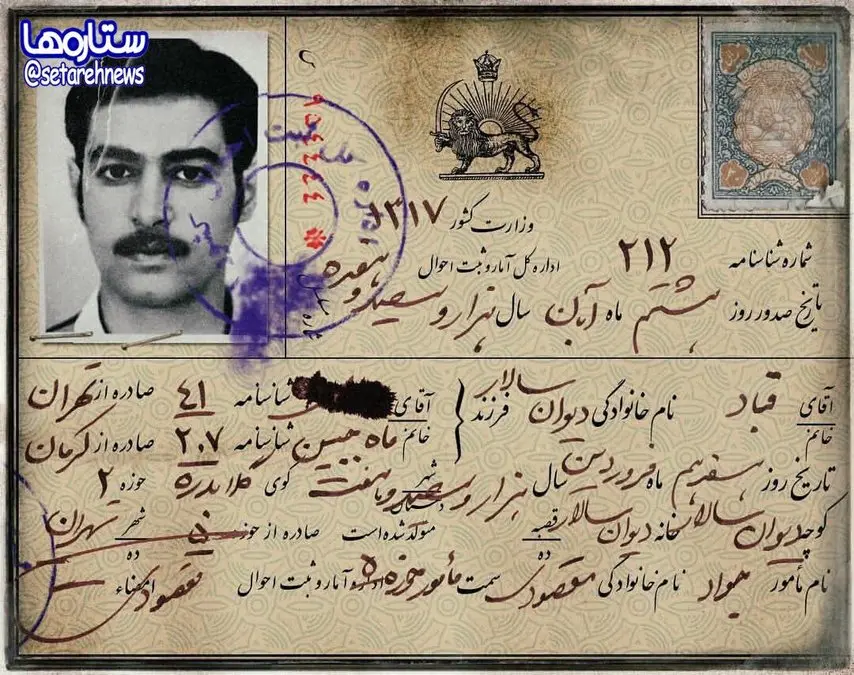 ستاره‌ها
@setarehnews
وزارت کشور ۱۳۱۷
اداره کل آمار و ثبت احوال
شماره شناسنامه ۲۱۲
تاریخ صدور روز هشتم ماه آبان سال هزار و سیصد و هفده
آقای قباد نام خانوادگی دیوان سالار فرزند آقای شناسنامه ۴۱ صادره از تهران
خانم خانم ماه جبین شناسنامه ۲۰۷ صادره از کرمان
تاریخ روز هفدهم ماه فروردین سال هزار و سیصد و هفت شهر کوی گلابدره حوزه ۲
کوچه دیوان سالار خانه دیوان سالار قصبه ده متولد شده است صادره از حوزه ۵ شهر ده تهران
نام مأمور جواد نام خانوادگی مقصودی سمت مأمور حوزه ۵ آمار و ثبت احوال امضاء مقصودی